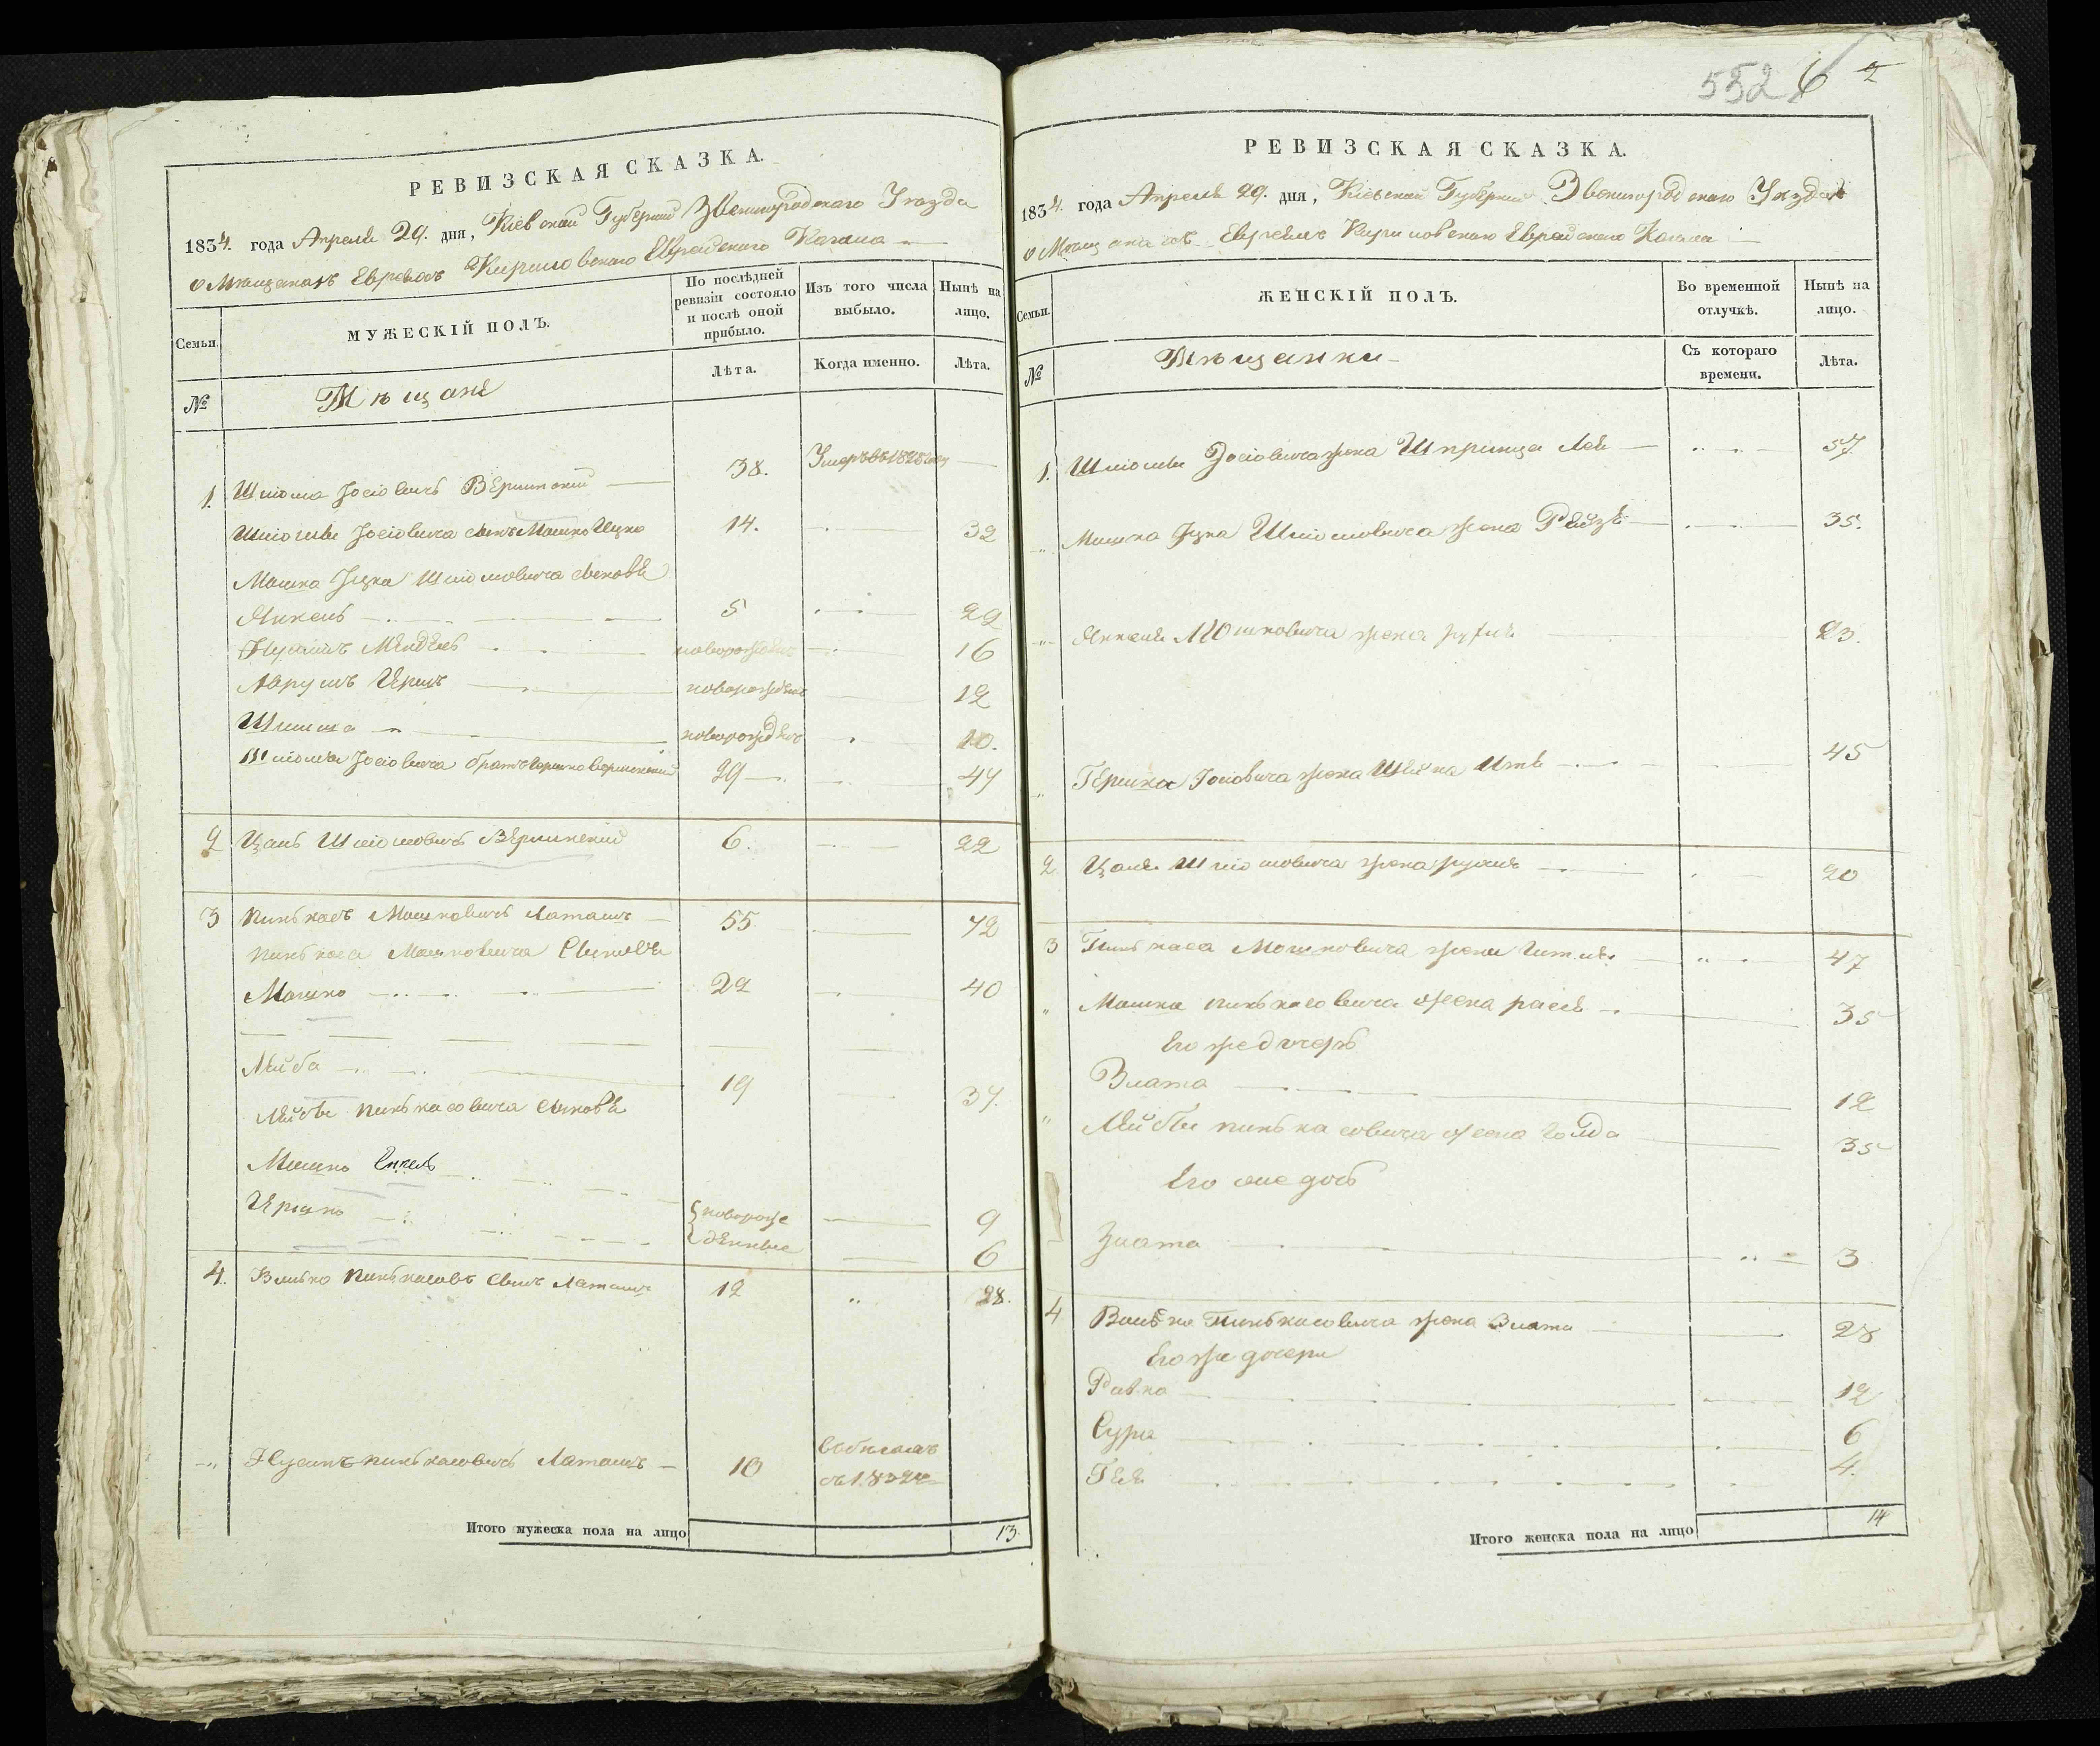 РЕВИЗСКАЯ СКАЗКА.
1834. года Апреля 29. дня, Кіевской Губерніи Звенигородскаго Уѣзда
о Мѣщанахъ Евреяхъ Кириловскаго Еврейскаго Кагала
Семьи.
МУЖЕСКІЙ ПОЛЪ.
По послѣдней ревизіи состояло и послѣ оной прибыло.
Изъ того числа выбыло.
Нынѣ на лицо.
№
Мѣщане
Лѣта.
Когда именно.
Лѣта.
1. Шліома Іосіовичъ 38. Умеръ въ 1825 году
Шліомы Іосіовича сынъ Мошко Ицко 14. 32
Мошка Ицка Шліомовича сыновья
Янкель 5 22
Нусимъ Мендель новорожденъ 16
Аврумъ Гершъ новорожденъ 12
Шлиома новорожденъ 10.
Шліомы Іосіовича братъ Гершко 29 44
2 Цаль Шліомовичъ 6. 22
3 Пинькасъ Мошковичъ Латашъ 55 72
Пинькаса Мошковича Сыновья
Мошко 22 40
Лейба 19 37.
Лейбы Пинькасовича сыновья
Мошко
Гершко
новорожденные
9
6
4. Волько Пинькасовъ сынъ Латашъ 12 28.
Нусинъ Пинькасовичъ Латашъ 10
Итого мужеска пола на лицо 13
552 6 2
РЕВИЗСКАЯ СКАЗКА.
1834. года Апреля 29. дня, Кіевской Губерніи Звенигородскаго Уѣзда
о Мѣщанахъ Евреяхъ Кириловскаго Еврейскаго Кагала
Семьи.
ЖЕНСКІЙ ПОЛЪ.
Во временной отлучкѣ.
Нынѣ на лицо.
№
Мѣщанки
Съ котораго времени.
Лѣта.
1. Шліомы Іосіовича жена Шпринца Лея 57
Мошка Ицка Шліомовича жена Рейзя 35.
Янкеля Мошковича жена 23.
Гершка Іосіовича жена Шейна 45
2 Цаля Шліомовича жена 20
3 Пинькаса Мошковича жена Гитля 47
Мошка Пинькасовича жена 35
Его же дочерь
Злата 12
Лейбы Пинькасовича жена Голда 35
Его же дочь
Злата 3
4 Волька Пинькасовича жена Злата 28
Его же дочери
Ривка 12
Сура 6
4.
Итого женска пола на лицо 14